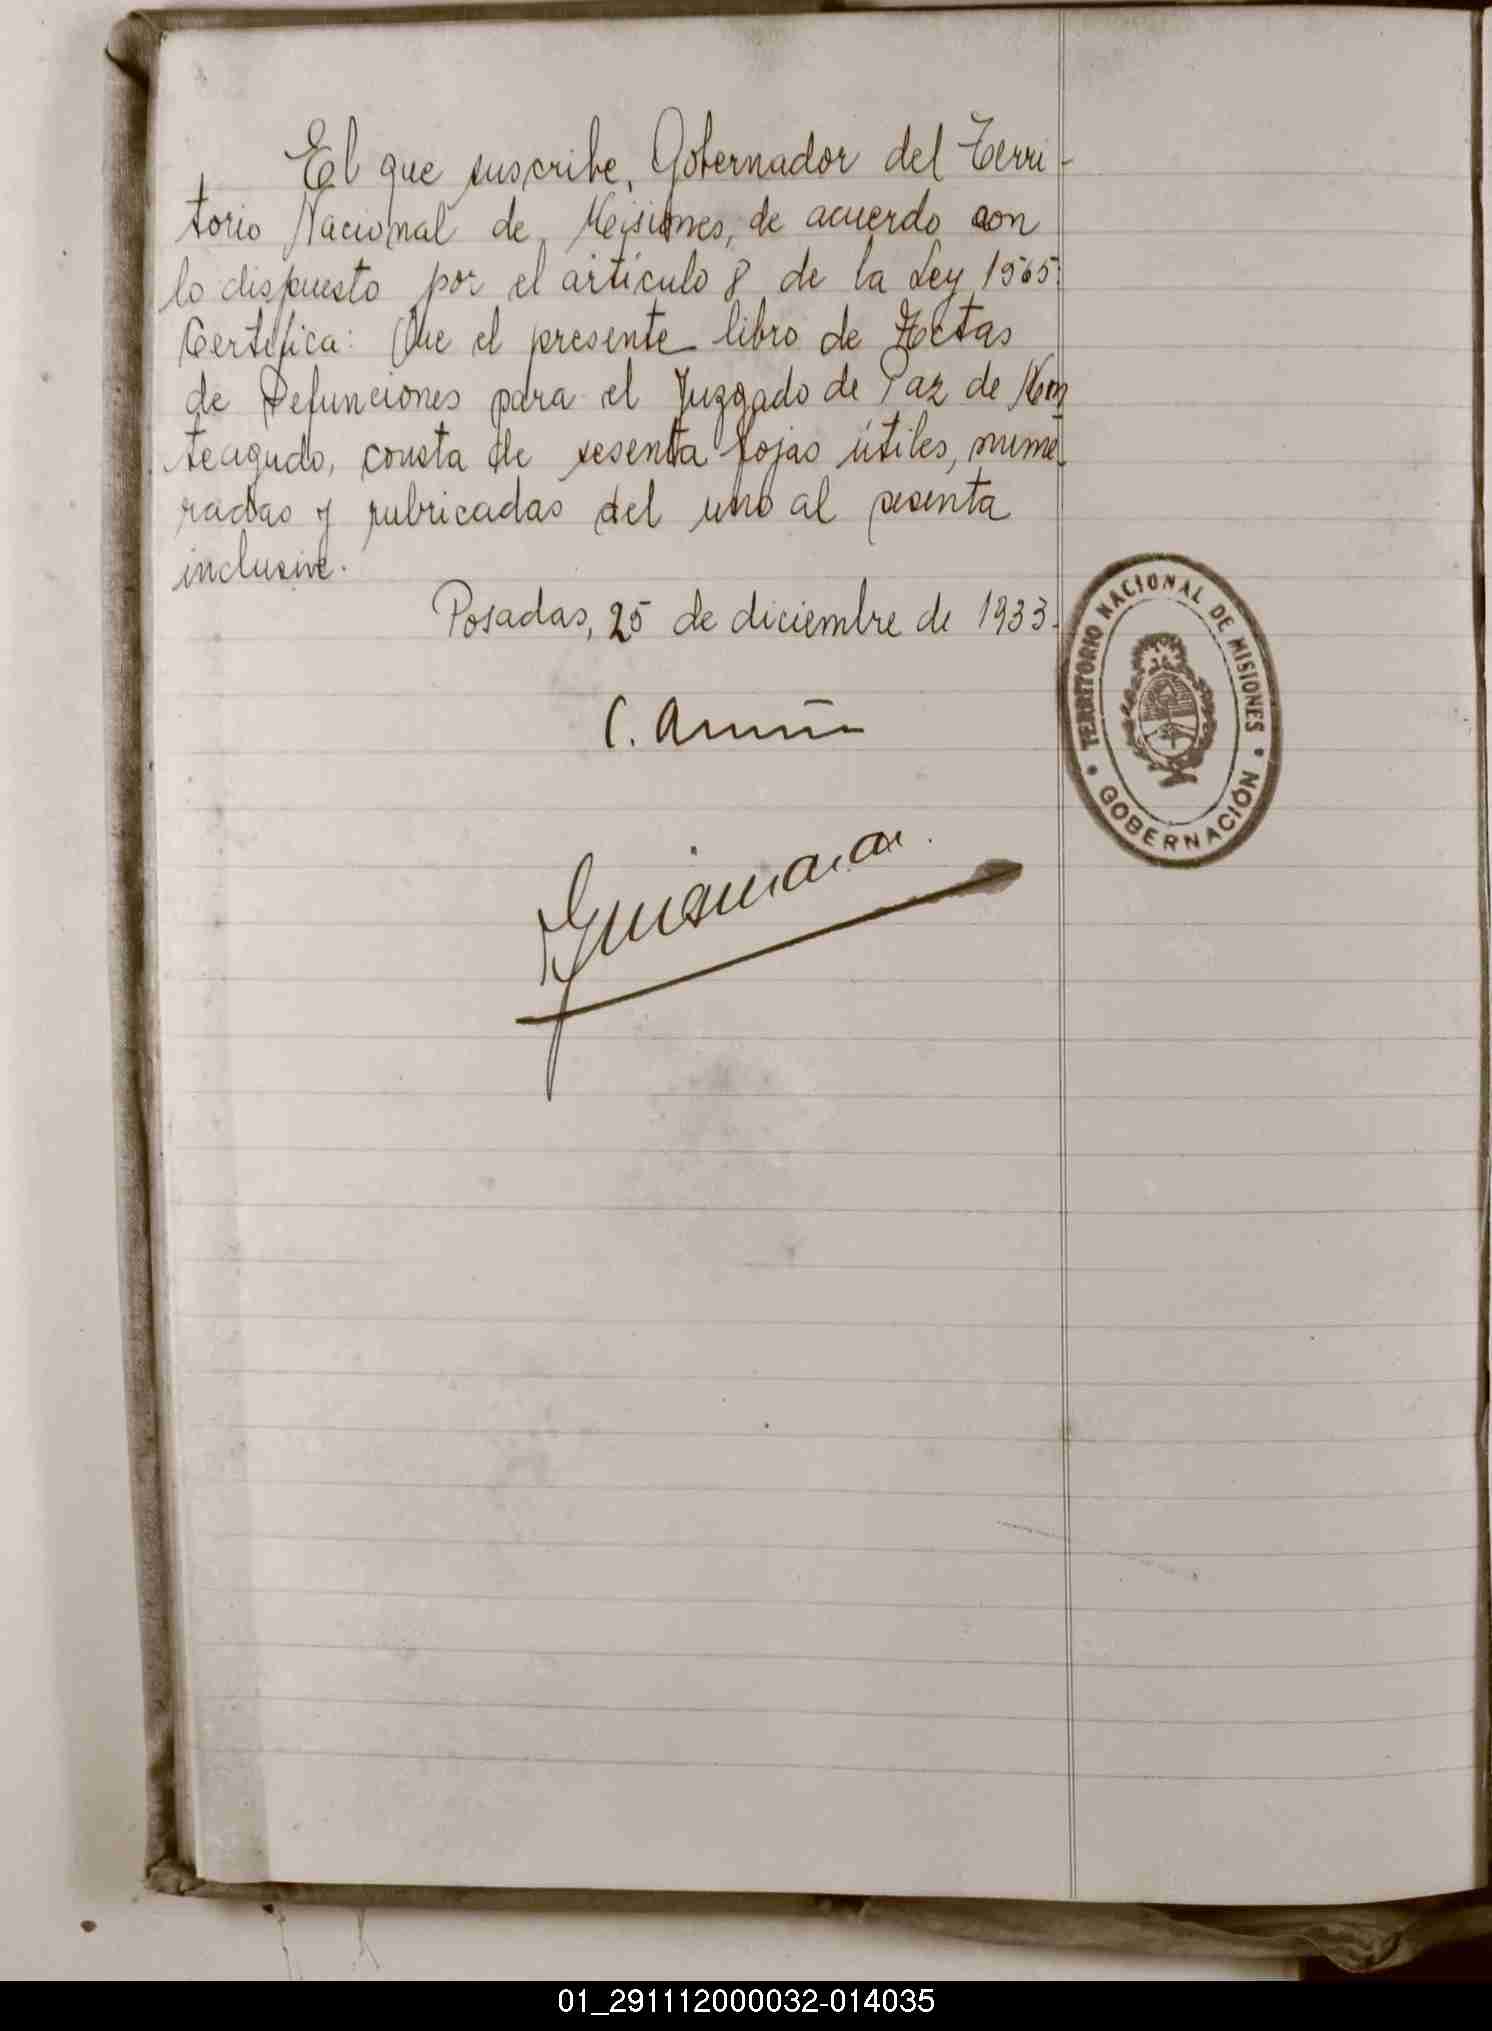 El que suscribe, Gobernador del Terri-
torio Nacional de Misiones, de acuerdo con
lo dispuesto por el artículo 8 de la Ley 1565.
Certifica: Que el presente libro de Actas
de Defunciones para el Juzgado de Paz de Mon
teagudo, consta de sesenta fojas útiles, nume-
radas y rubricadas del uno al sesenta
inclusive.
Posadas, 25 de diciembre de 1933.
TERRITORIO NACIONAL DE MISIONES
GOBERNACIÓN
C.
01_291112000032-014035